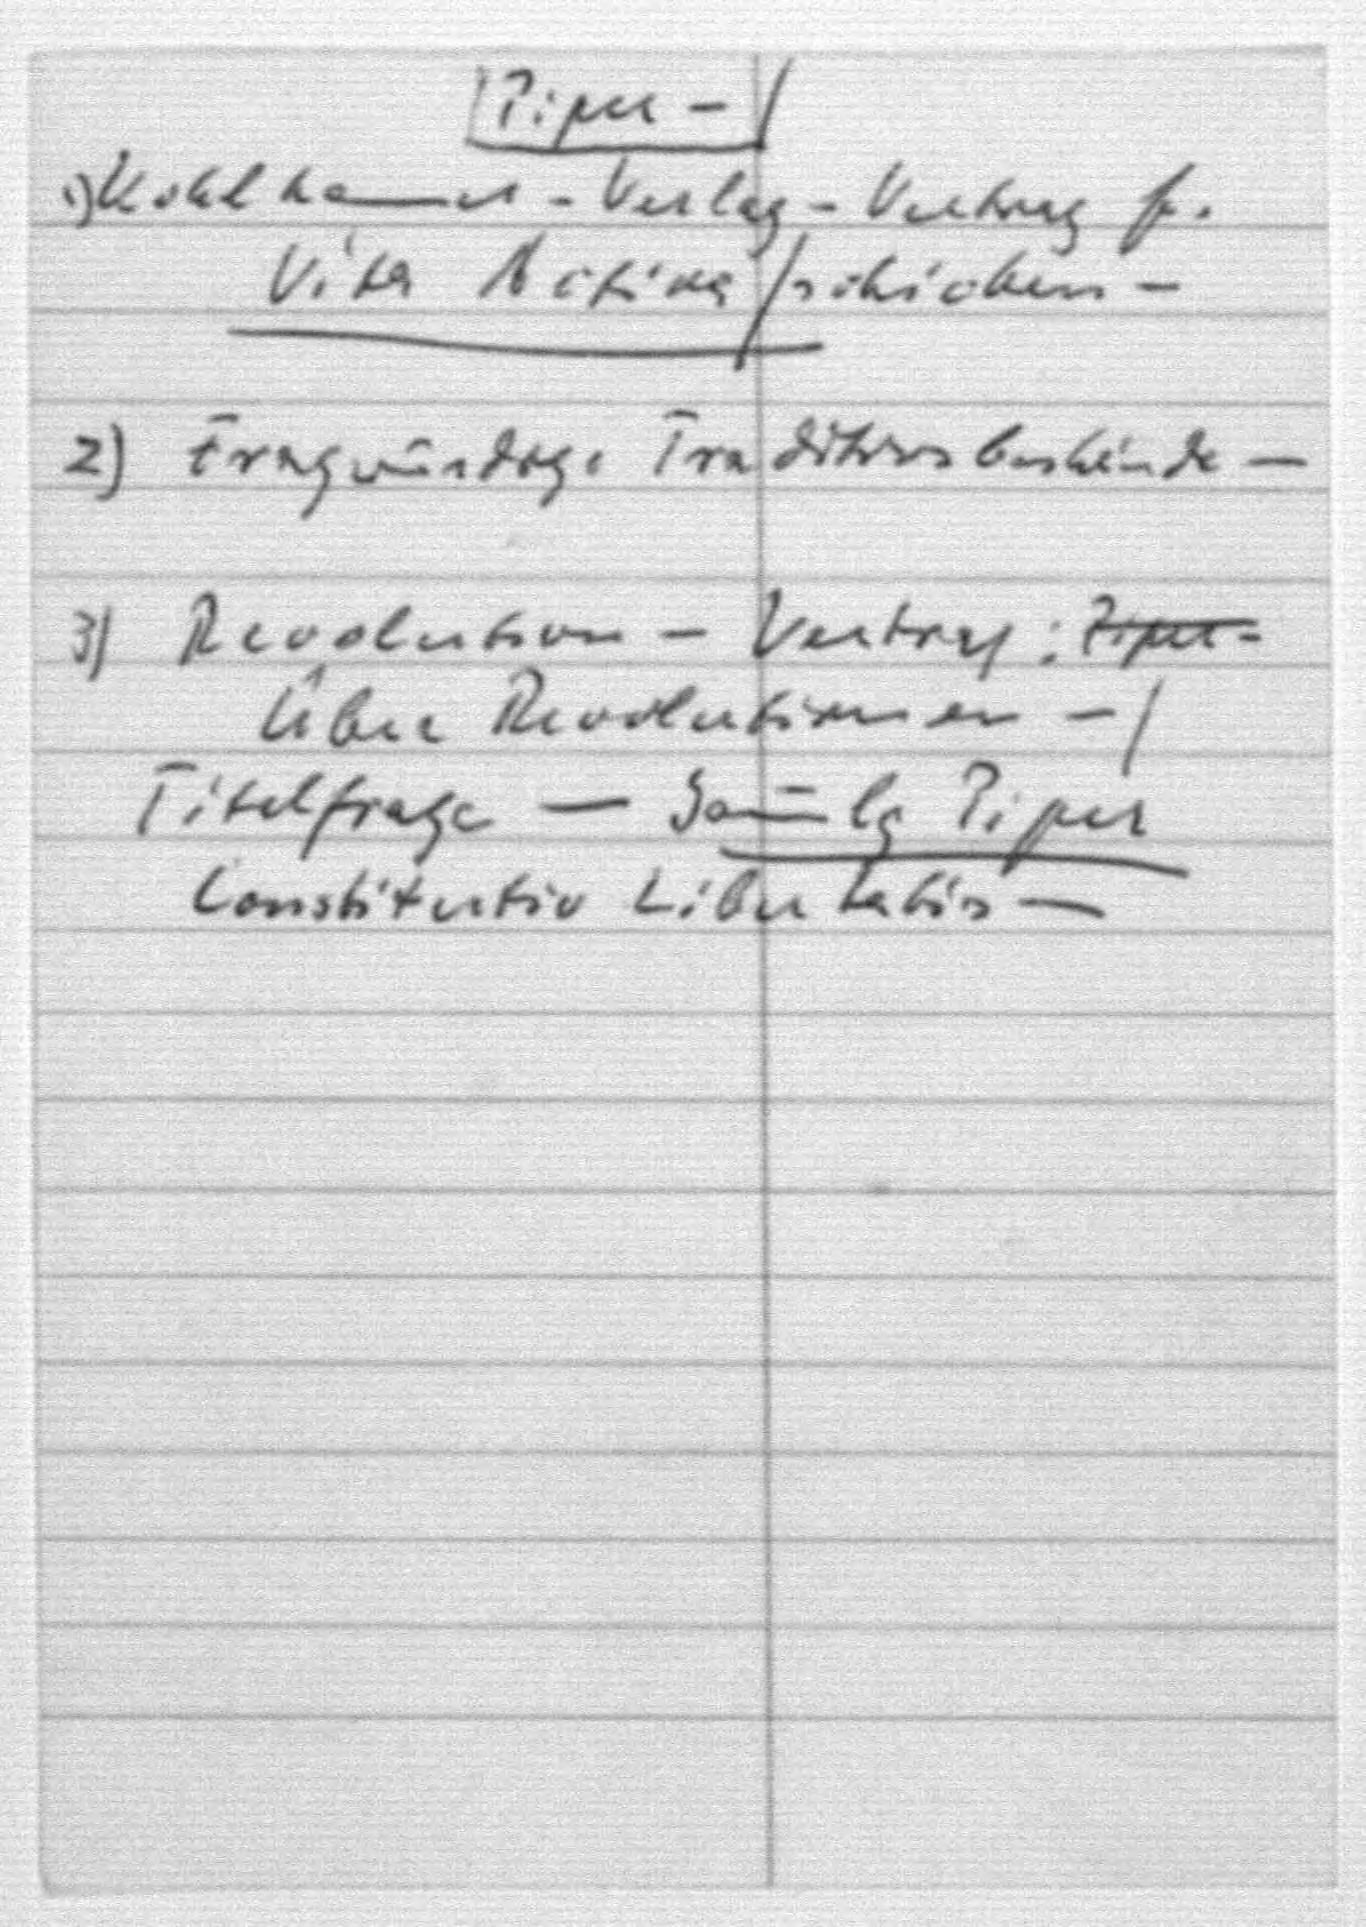 Piper –
1) Kohlhammer – Verlag – Vertrag f.
Vita Activa / schicken –
2) Fragwürdige Traditionsbestände –
3) Revolution – Vertrag : Piper –
Über Revolutionen – /
Titelfrage — Sammlg Piper
Constitutio Libertatis —